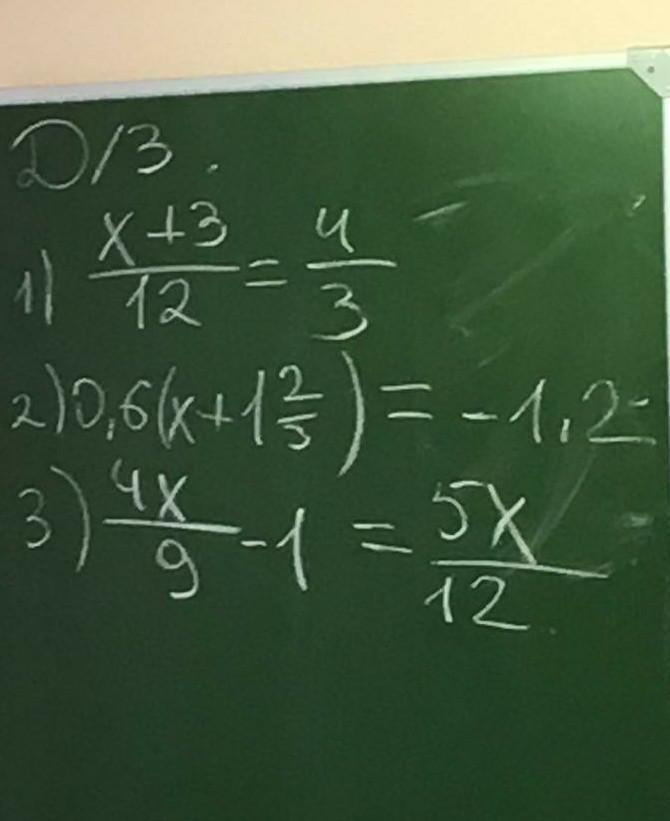 Д/З.
1) \frac{x+3}{12} = \frac{4}{3}
2) 0,6(x+1\frac{2}{3}) = -1,2
3) \frac{4x}{9} - 1 = \frac{5x}{12}